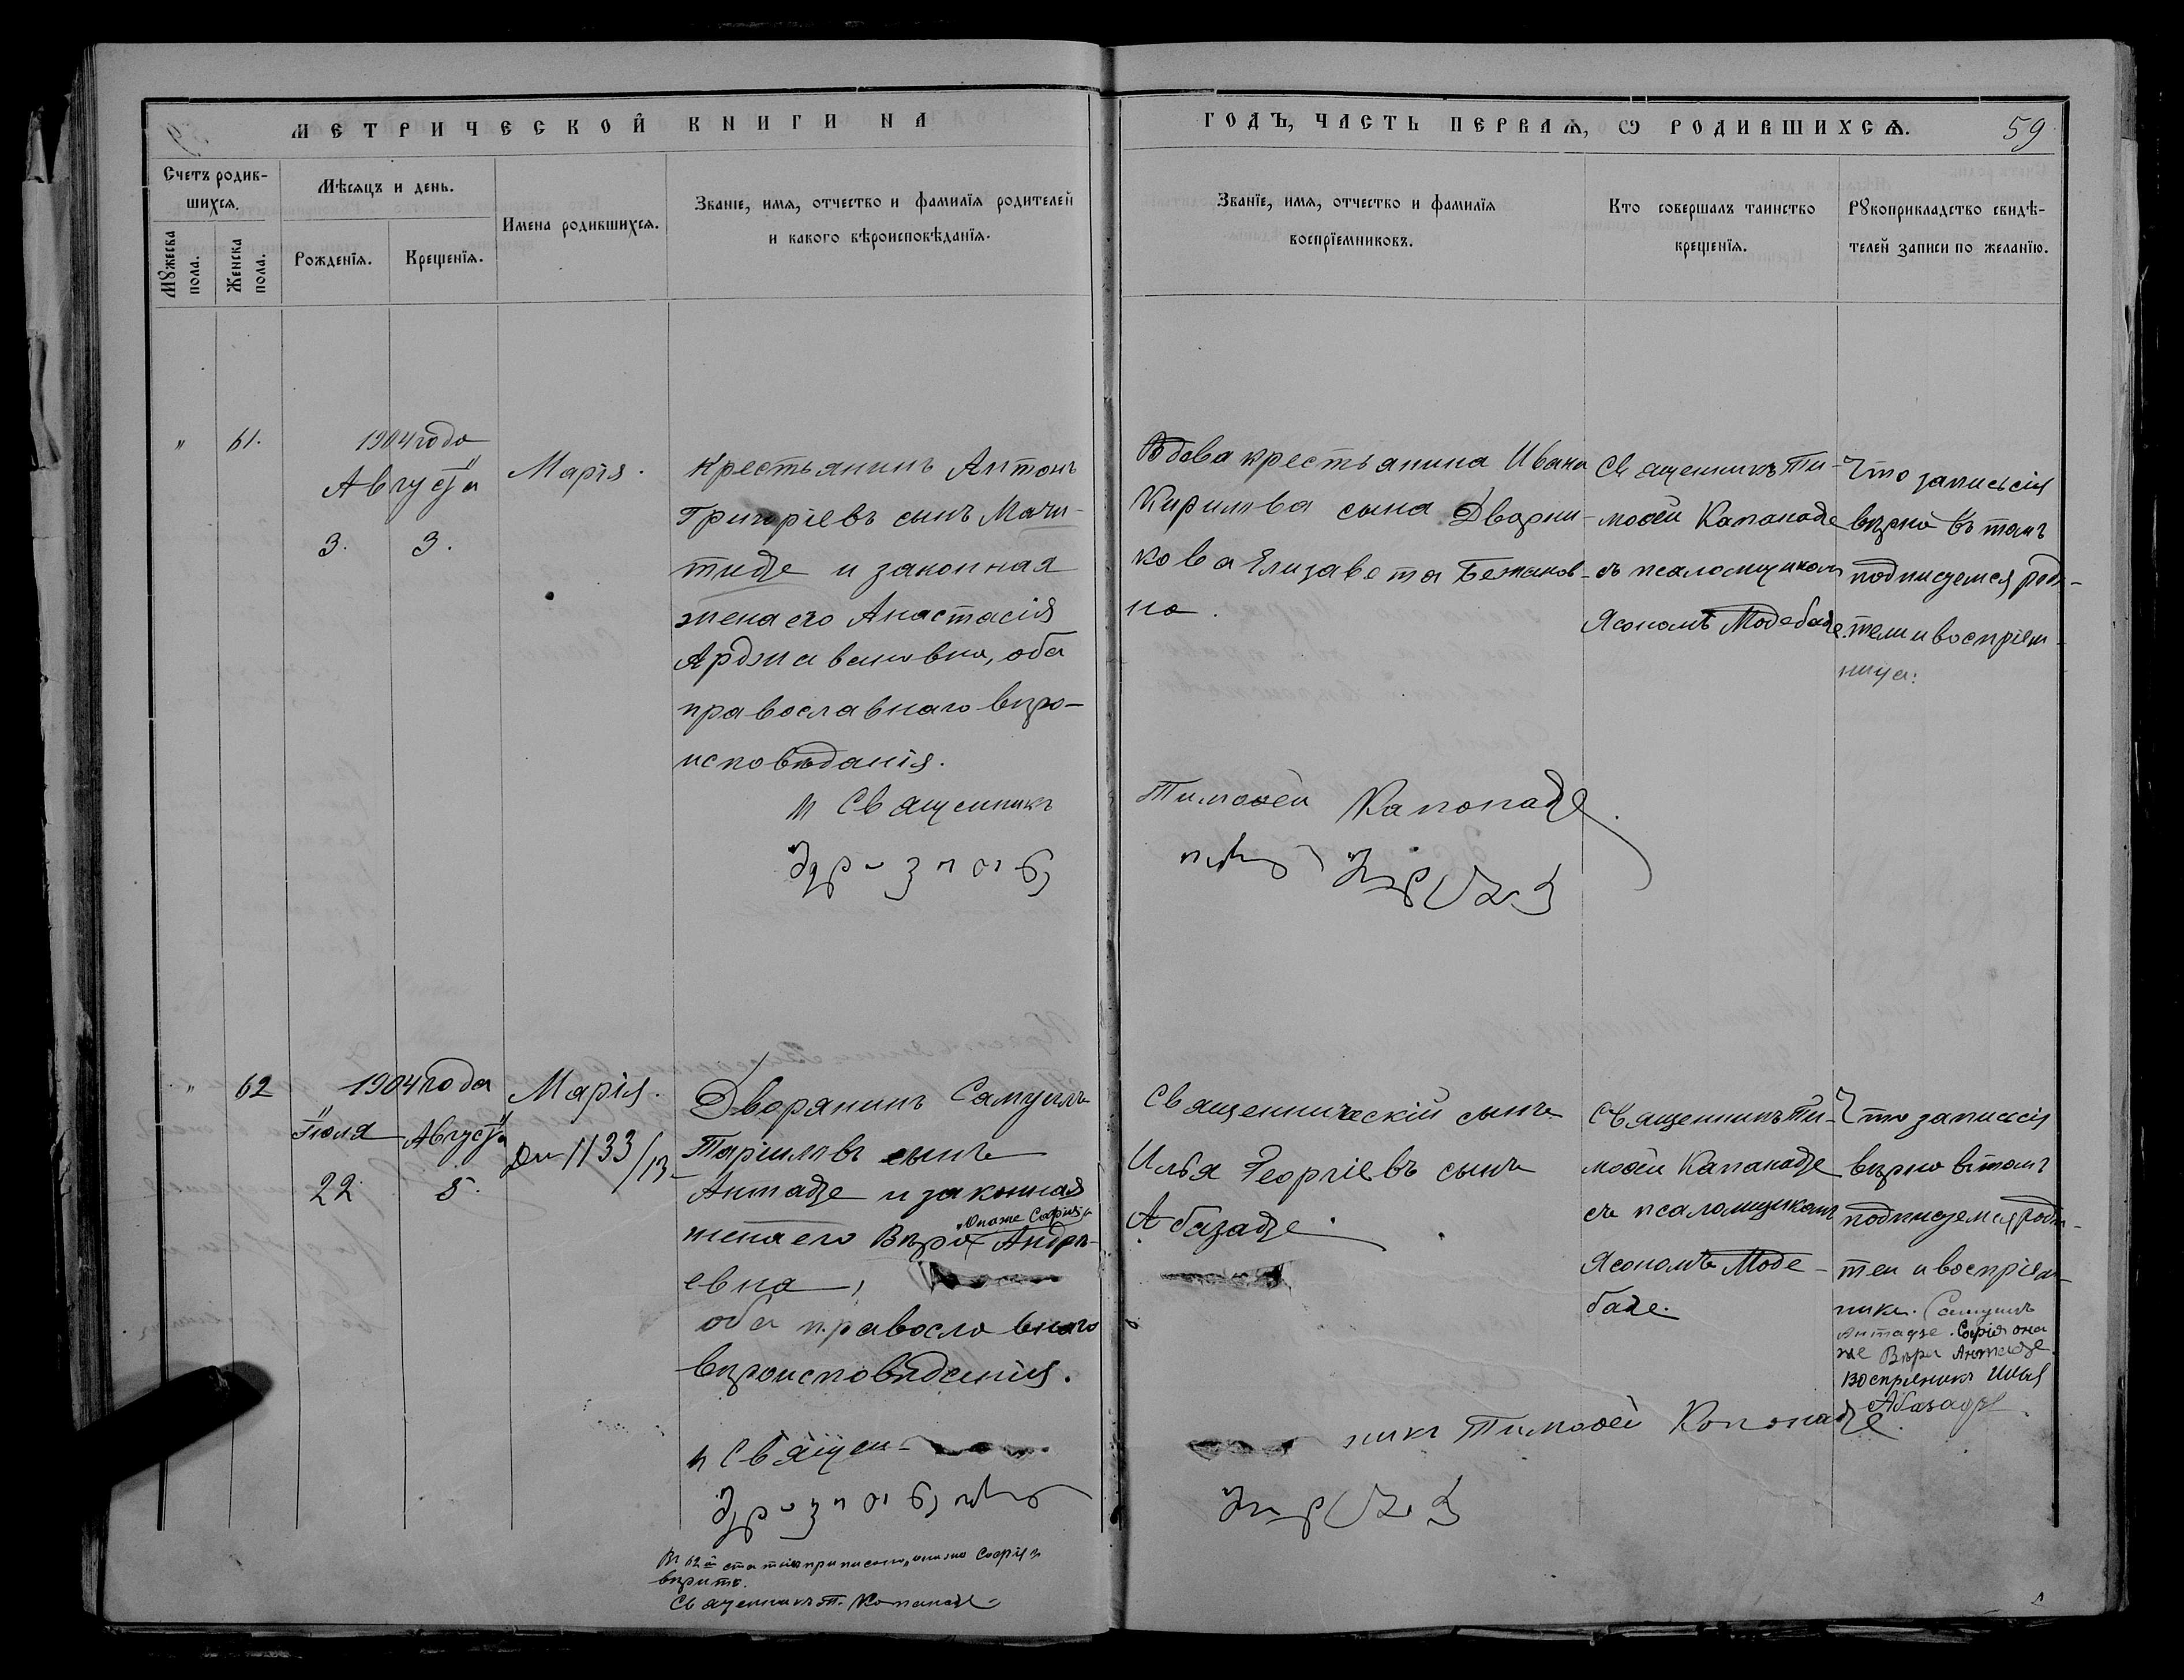 МЕТРИЧЕСКОЙ КНИГИ НА
ГОДЪ, ЧАСТЬ ПЕРВАЯ, Ѡ РОДИВШИХСЯ.
59
Счетъ родив-
шихся.
Мѹжеска
пола.
Женска
пола.
Мѣсяцъ и день.
Рожденїя.
Крещенїя.
Имена родившихся.
Званїе, имя, отчество и фамилїя родителей
и какого вѣроисповѣданїя.
Званїе, имя, отчество и фамилїя
воспрїемниковъ.
Кто совершалъ таинство
крещенїя.
Рѹкоприкладство свидѣ-
телей записи по желанїю.
"
61.
1904 года
Августа
3.
3.
Марія.
Крестьянинъ Антонъ
Григоріевъ сынъ Мачи-
тидзе и законная
жена его Анастасія
Арджавановна, оба
православнаго вѣро-
исповѣданія.
Вдова крестьянина Ивана
Кирилова сына Дворни-
кова Елизавета Бежанов-
на.
Священникъ Ти-
моѳей Капанадзе
съ псаломщикомъ
Ясономъ Модебадзе.
Что запись сія
вѣрна въ томъ
подписуемся роди-
тели и воспріем-
ница:
и Священникъ
Тимоѳей Капанадзе
"
62
1904 года
Іюля
Августа
22
5.
Марія.
1133/13
Дворянинъ Самуилъ
Таріиловъ сынъ
Антадзе и законная
"она же Софія"
жена его Вѣра Андре-
евна,
оба православнаго
вѣроисповѣданія.
Священническій сынъ
Илья Георгіевъ сынъ
Абазадзе.
Священникъ Ти-
моѳей Капанадзе
съ псаломщикомъ
Ясономъ Моде-
бадзе.
Что запись сія
вѣрна въ томъ
подписуемся роди-
тели и воспріем-
никъ. Самуилъ
Антадзе. Софія она
же Вѣра Антадзе
Воспріемникъ Илья
Абазадзе
и Священ-
никъ Тимоѳей Капанадзе.
Въ 62й статьѣ приписано "она же Софія"
вѣрить.
Священникъ Т. Капанадзе